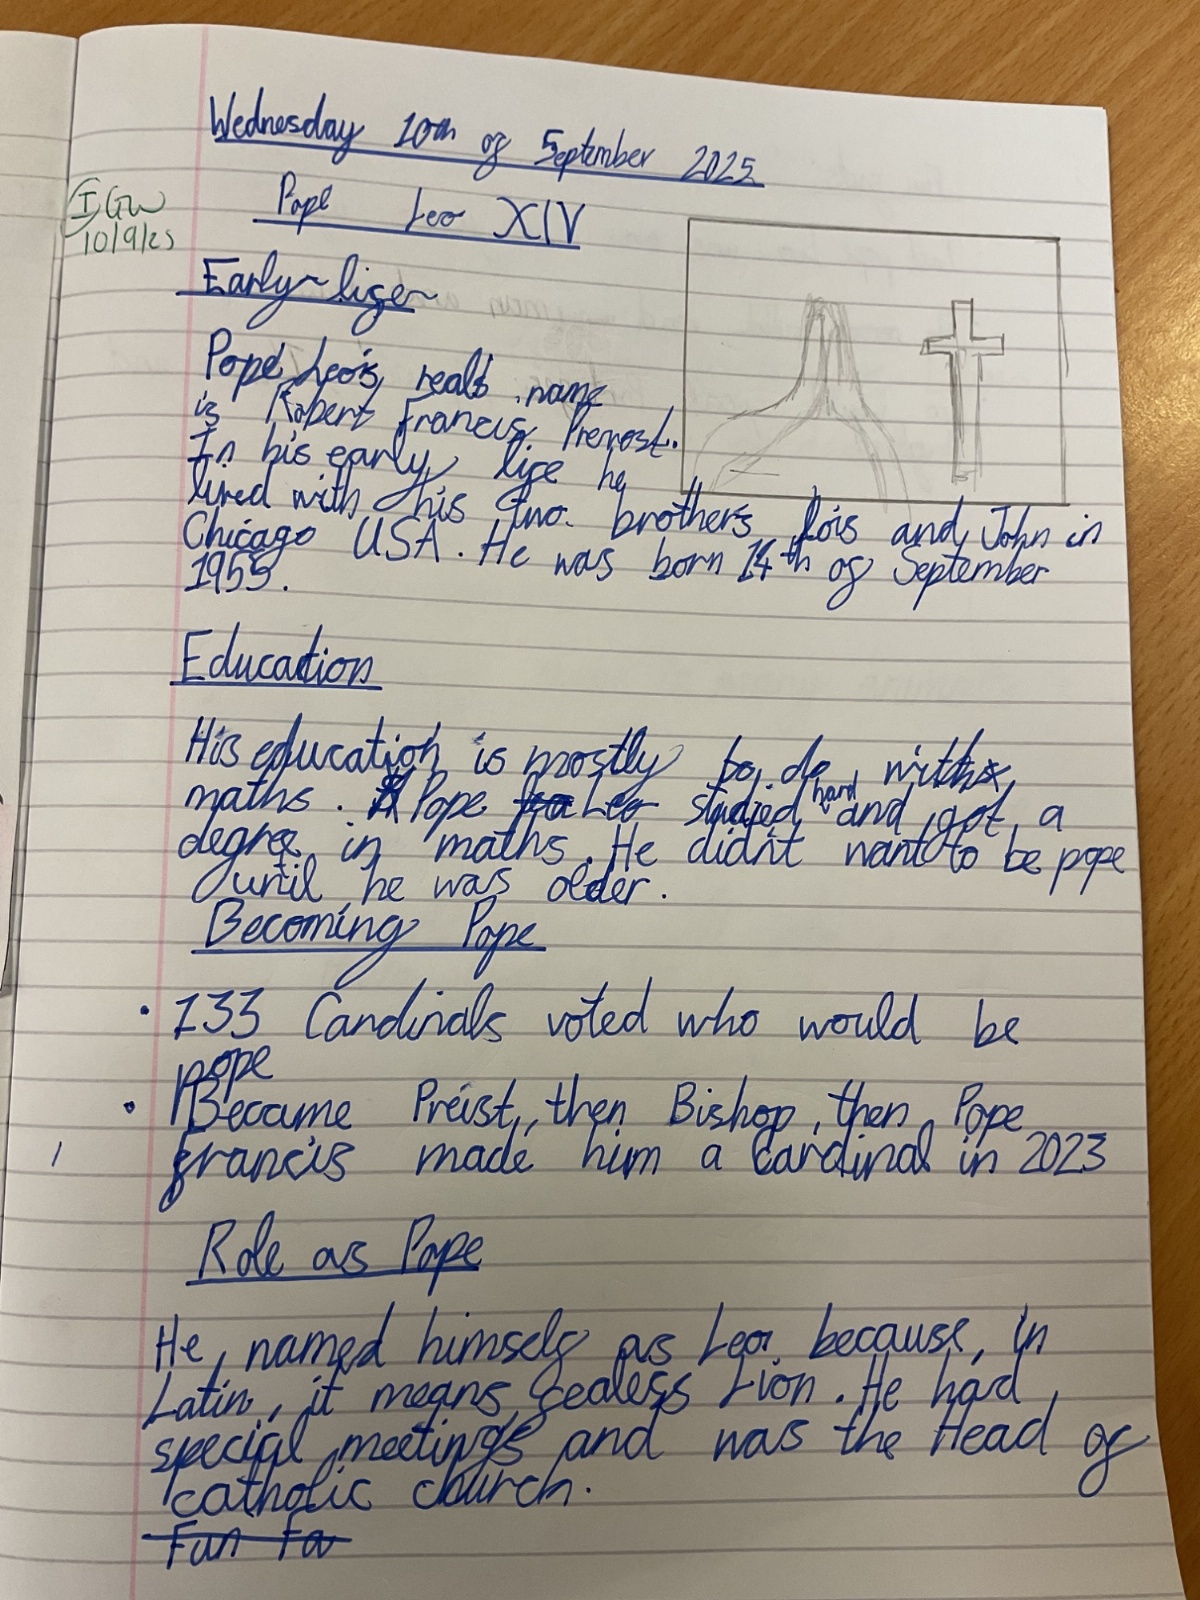 Wednesday 10th of September 2025
Pope Leo XIV
I GW
10/9/25
Early life
Pope Leo's real name
is Robert Francis Prevost.
In his early life he
lived with his two brothers lois and John in
Chicago USA. He was born 14th of September
1955.
Education
His education is mostly to do with
maths. Pope Leo studied hard and got a
degree in maths. He didn't want to be pope
until he was older.
Becoming Pope
• 133 Cardinals voted who would be
pope
• Became Preist, then Bishop, then Pope
francis made him a cardinal in 2023
Role as Pope
He named himself as Leo because, in
Latin, it means fealess Lion. He had
special meetings and was the Head of
catholic church.
Fun fa